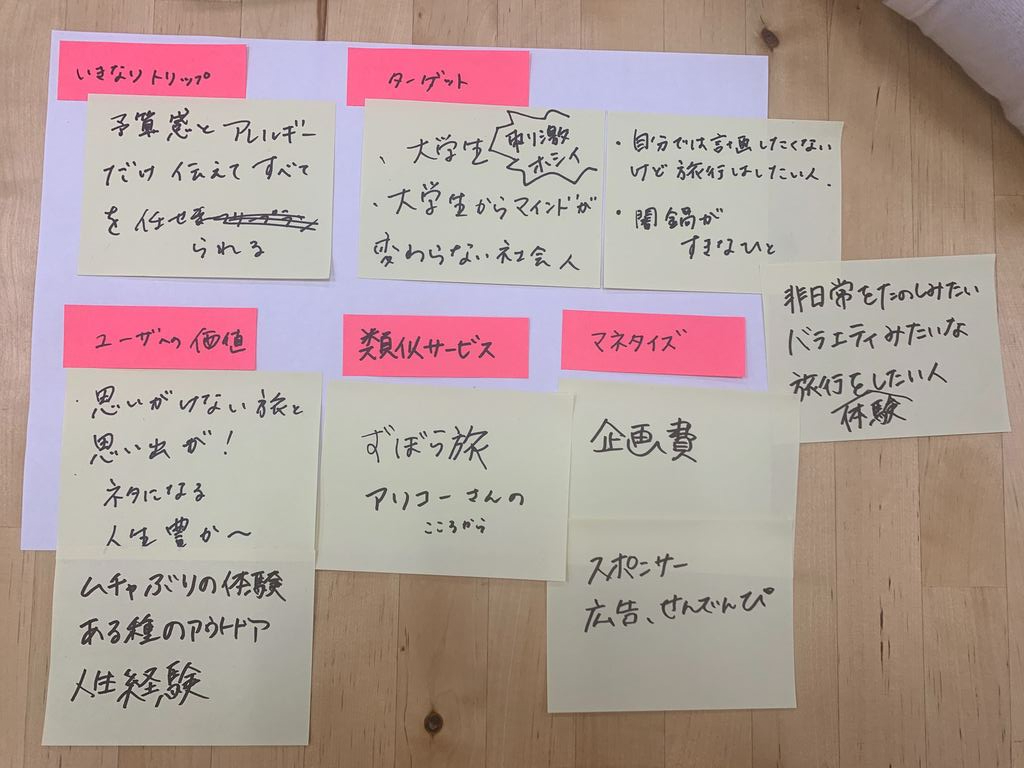 いきなりトリップ
予算感と アレルギー
だけ 伝えて すべて
を 任せ
られる
ターゲット
・大学生
刺激
ホシイ
・大学生からマインドが
変わらない社会人
・自分では計画したくない
けど旅行はしたい人.
・闇鍋が
すきなひと
非日常をたのしみたい
バラエティみたいな
旅行をしたい人
体験
ユーザへの価値
・思いがけない旅と
思い出が!
ネタになる
人生豊か〜
ムチャぶりの体験
ある種のアウトドア
人生経験
類似サービス
ずぼら旅
アリコーさんの
こころから
マネタイズ
企画費
スポンサー
広告、せんでんぴ